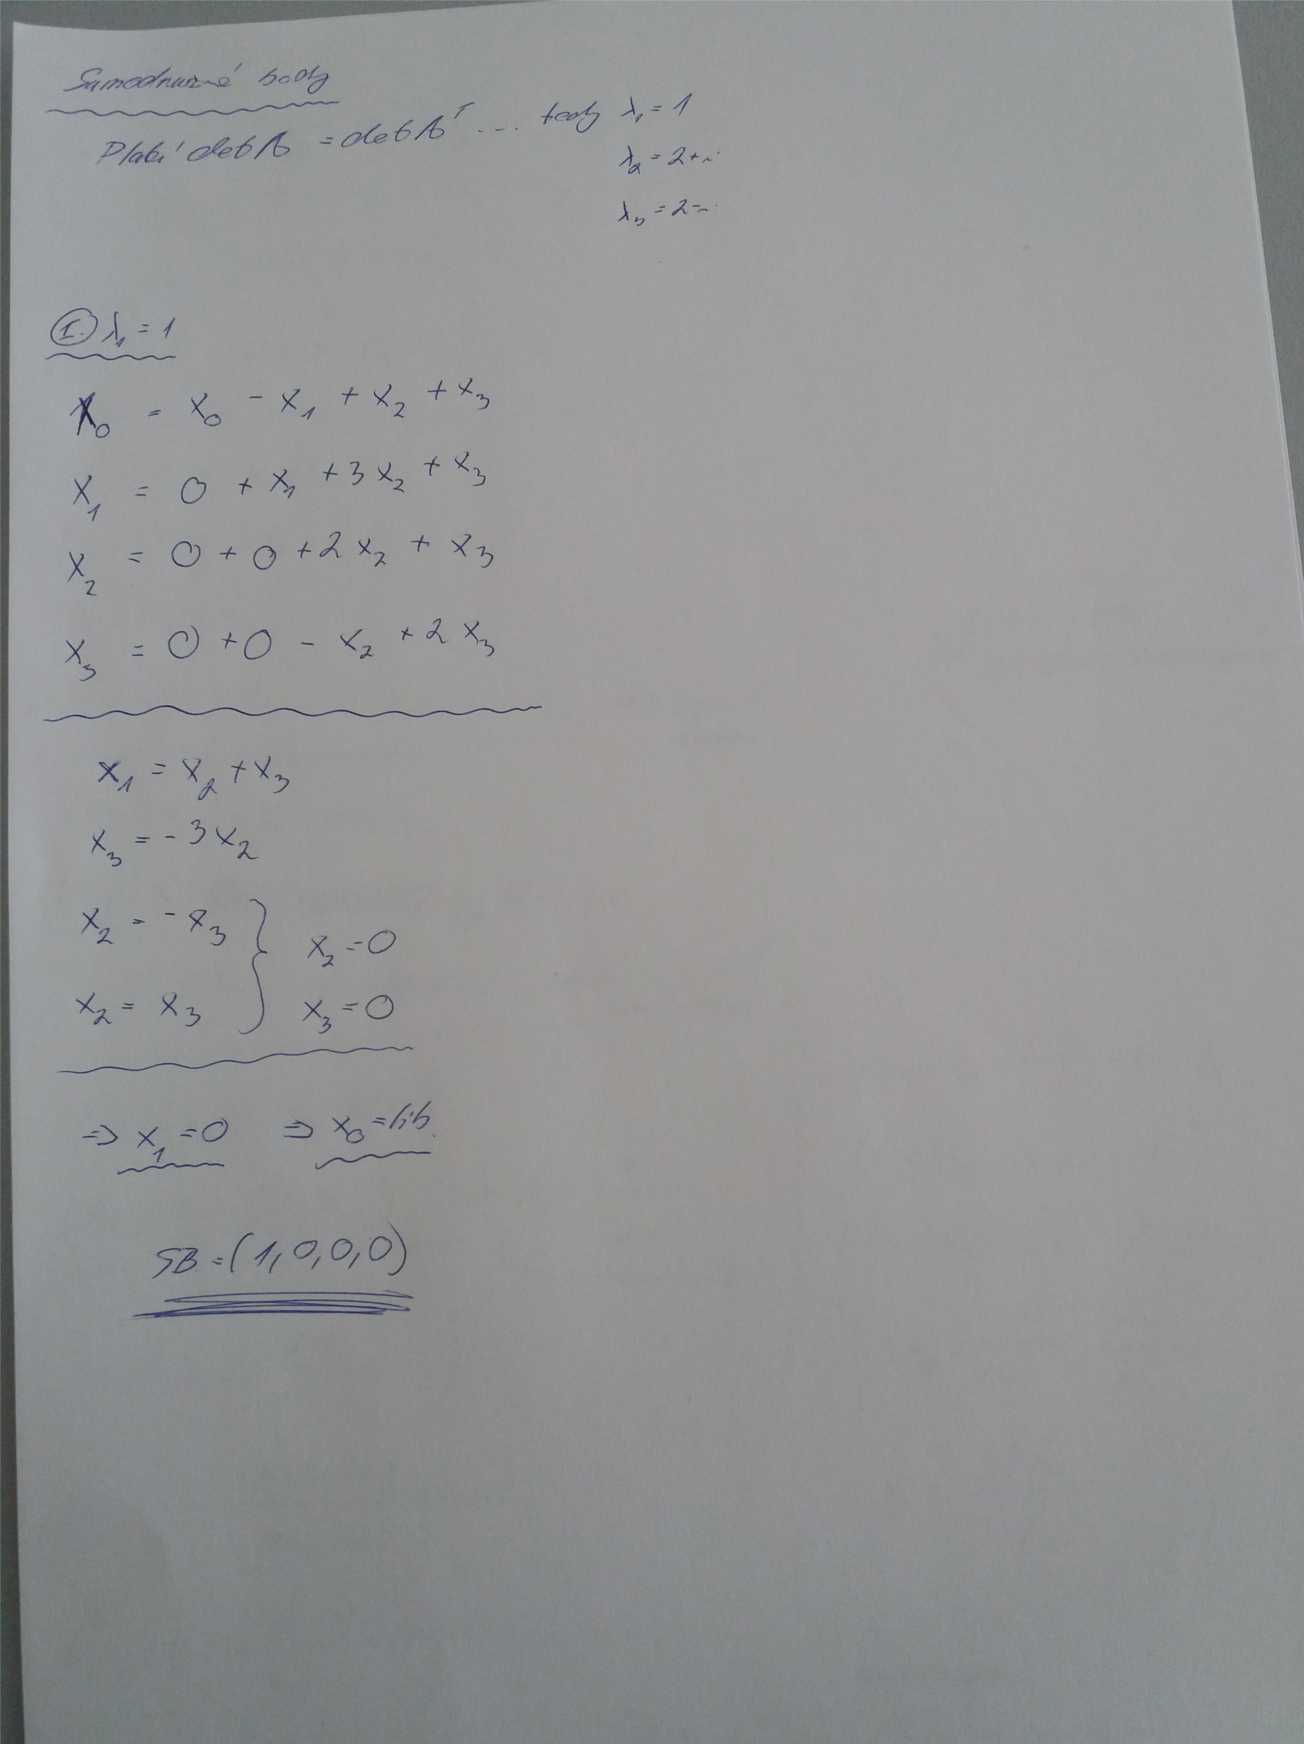 Samodružné body
Platí detA = detAᵀ ... tedy λ₁ = 1
λ₂ = 2+i
λ₃ = 2-i
I. λ₁ = 1
x₀ = x₀ - x₁ + x₂ + x₃
x₁ = 0 + x₁ + 3x₂ + x₃
x₂ = 0 + 0 + 2x₂ + x₃
x₃ = 0 + 0 - x₂ + 2x₃
x₁ = x₂ + x₃
x₃ = -3x₂
x₂ = -x₃
x₂ = 0
x₂ = x₃
x₃ = 0
⇒ x₁ = 0 ⇒ x₀ = lib.
SB = (1,0,0,0)